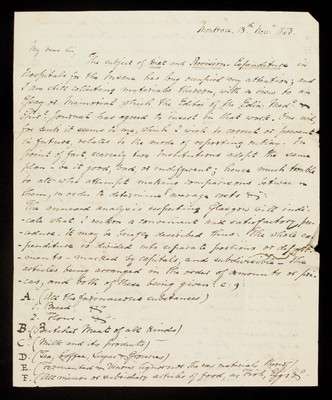 Montrose, 13th Novr 1863.
My dear Sir,
The subject of Diet and Provision Expenditure in
Hospitals for the Insane has long occupied my attention; and
I am still collecting materials thereon, with a view to an
Essay or Memorial which the Editor of the Edinr Medl &
Journal has agreed to insert in that work. One evil
for such it seems to me, which I wish to correct or prevent
in future, relates to the mode of reporting dietary. In
point of fact scarcely two Institutions adopt the same
plan - be it good, bad, or indifferent; hence much trouble
to all who attempt making comparisons between
them, in order to determine average costs &c.
The annexed analysis respecting Glasgow will indi-
cate what I reckon a convenient and satisfactory pro-
cedure. It may be briefly described thus. The whole ex-
penditure is divided into separate portions or depart-
ments - marked by capitals, and subdivisible - the
articles being arranged in the order of amounts or pri-
ces, and both of these being given; e.g.
A. (All the farinaceous substances)
1. Bread.
2. Flour.
B. (Butcher Meat of all kinds)
C. (Milk and its products)
D. (Tea, Coffee, Sugar & Groceries)
E. (Fermented & Vinous liquors or the raw material, Spirits)
F. (All minor or subsidiary articles of food, as Fish, Eggs &c.